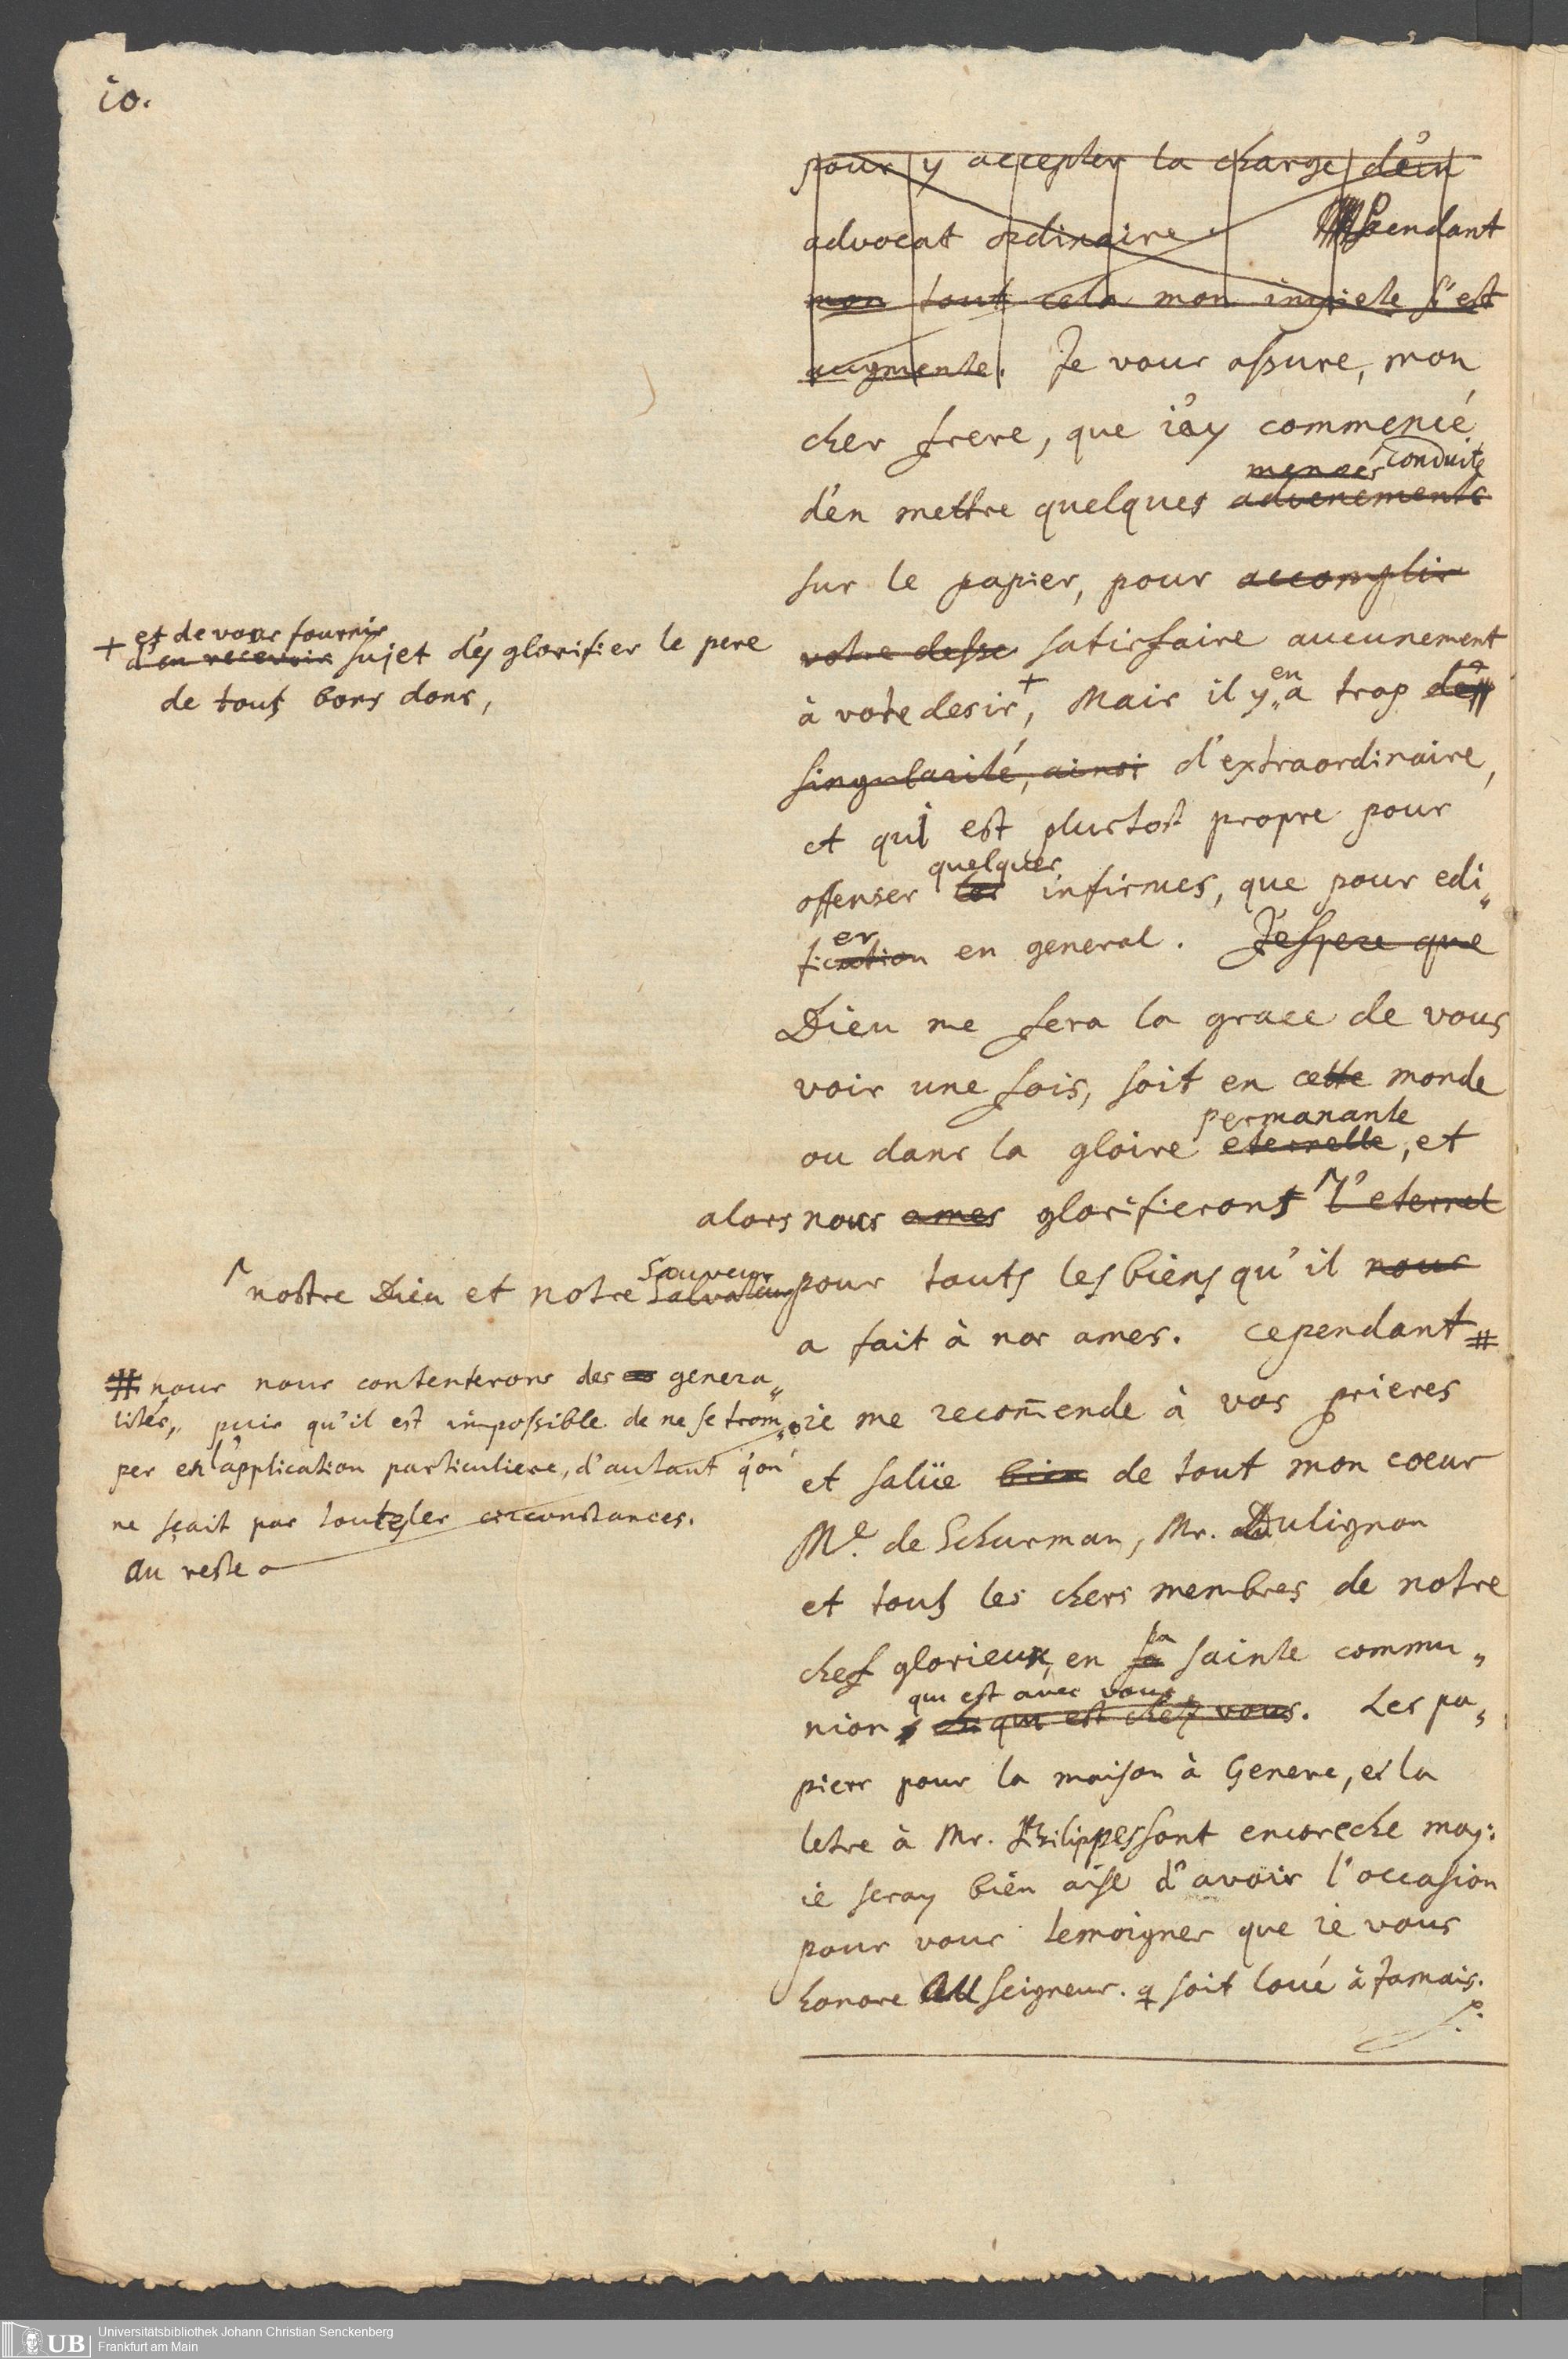 10.
pour y accepter la charge d'un
advocat ordinaire. Pendant
mon tout cela mon impieté s'est
augmente. Je vous assure, mon
cher frere, que i'ay commencé
menées conduite
d'en mettre quelques advenements
sur le papier, pour accomplir
votre desse satisfaire aucunement
à votre desir +, Mais il y en a trop de
singularité, ainsi d'extraordinaire,
et qui est plustost propre pour
quelques
offenser les infirmes, que pour edi„
er
fication en general. J'espere que
Dieu me fera la grace de vous
voir une fois, soit en cette monde
permanante
ou dans la gloire eternelle, et
alors nous ames glorifierons l'eternel
pour touts les biens qu'il nous
a fait à nos ames. Cependant #
ie me recom̄ende à vos prieres
et salüe bien de tout mon coeur
Me. de Schurman, Mr. Dulignon
et touts les chers membres de notre
chef glorieux, en sa sainte commu„
qui est avec vous
nion, qui est chez vous. Les pa„
piers pour la maison à Geneve, et la
letre à Mr. Philippes sont encore che moy:
ie seray bien aise d'avoir l'occasion
pour vous temoigner que ie vous
honore au seigneur. q soit loué à Jamais.
+ et de vous fournir
d'en recevoir sujet d'ej glorifier le pere
de touts bons dons,
nostre Dieu et notre Salvateur
Sauveur
# nous nous contenterons des genera„
lités, puis qu'il est impossible de ne se trom„
per en l'application particuliere, d'autant q'on
ne sçait pas toutes les circonstances.
au reste
Universitätsbibliothek Johann Christian Senckenberg
Frankfurt am Main
UB